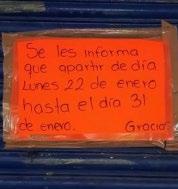 Se les informa
que apartir de dia
Lunes 22 de enero
hasta el día 31
de enero. Gracias